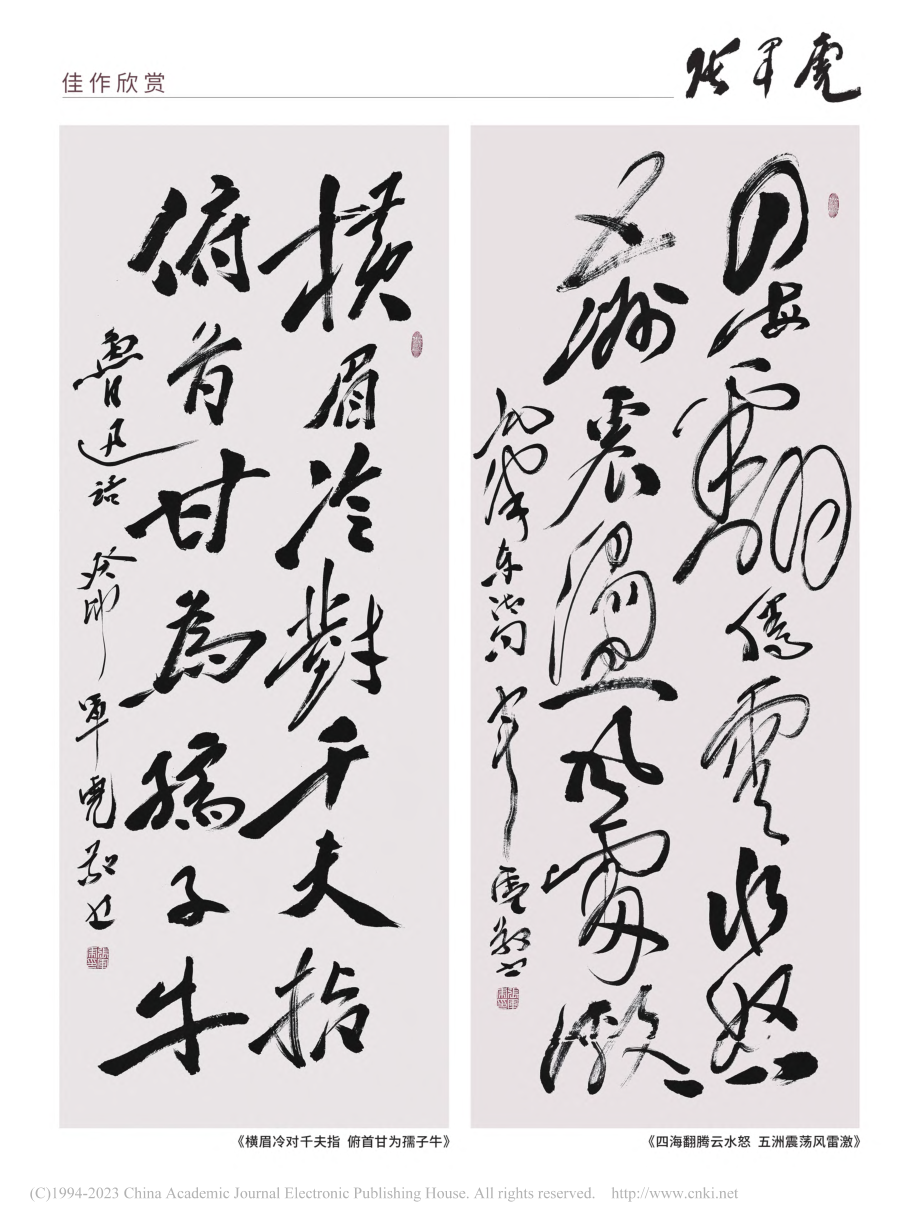 佳作欣赏
张军虎
横眉冷對千夫指
俯首甘為孺子牛
魯迅語 癸卯 軍虎敬书
四海翻騰雲水怒
五洲震盪風雷激
毛澤东诗句 军虎敬书
《横眉冷对千夫指 俯首甘为孺子牛》
《四海翻腾云水怒 五洲震荡风雷激》
(C)1994-2023 China Academic Journal Electronic Publishing House. All rights reserved. http://www.cnki.net